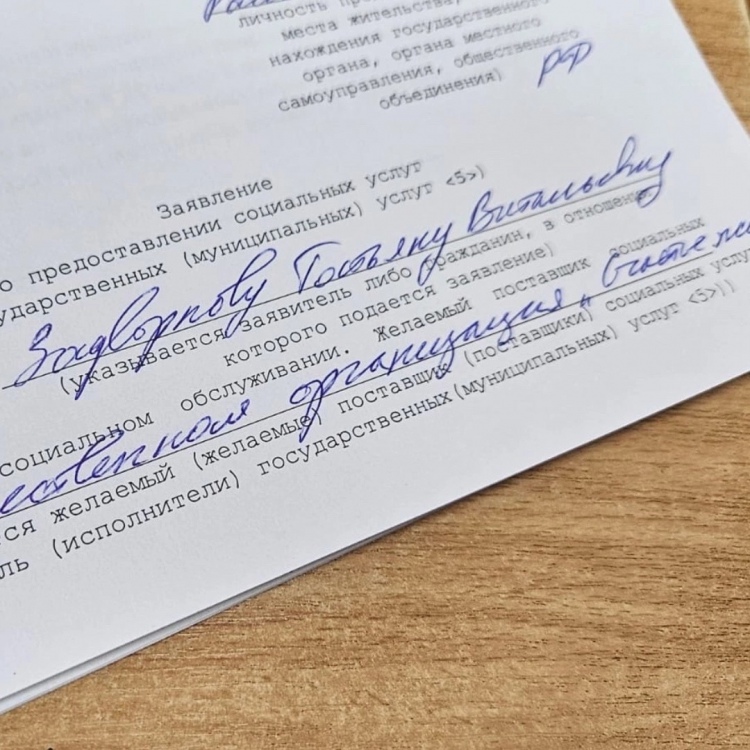 личность
места жительства,
нахождения государственного
органа, органа местного
самоуправления, общественного
объединения) РФ
Заявление
о предоставлении социальных услуг
ударственных (муниципальных) услуг <5>)
Задворнову Татьяну Витальевну
(указывается заявитель либо гражданин, в отношении
которого подается заявление)
социальном обслуживании. Желаемый поставщик социальных
ественная организация „
ся желаемый (желаемые) поставщик (поставщики) социальных услуг
ль (исполнители) государственных (муниципальных) услуг <5>))